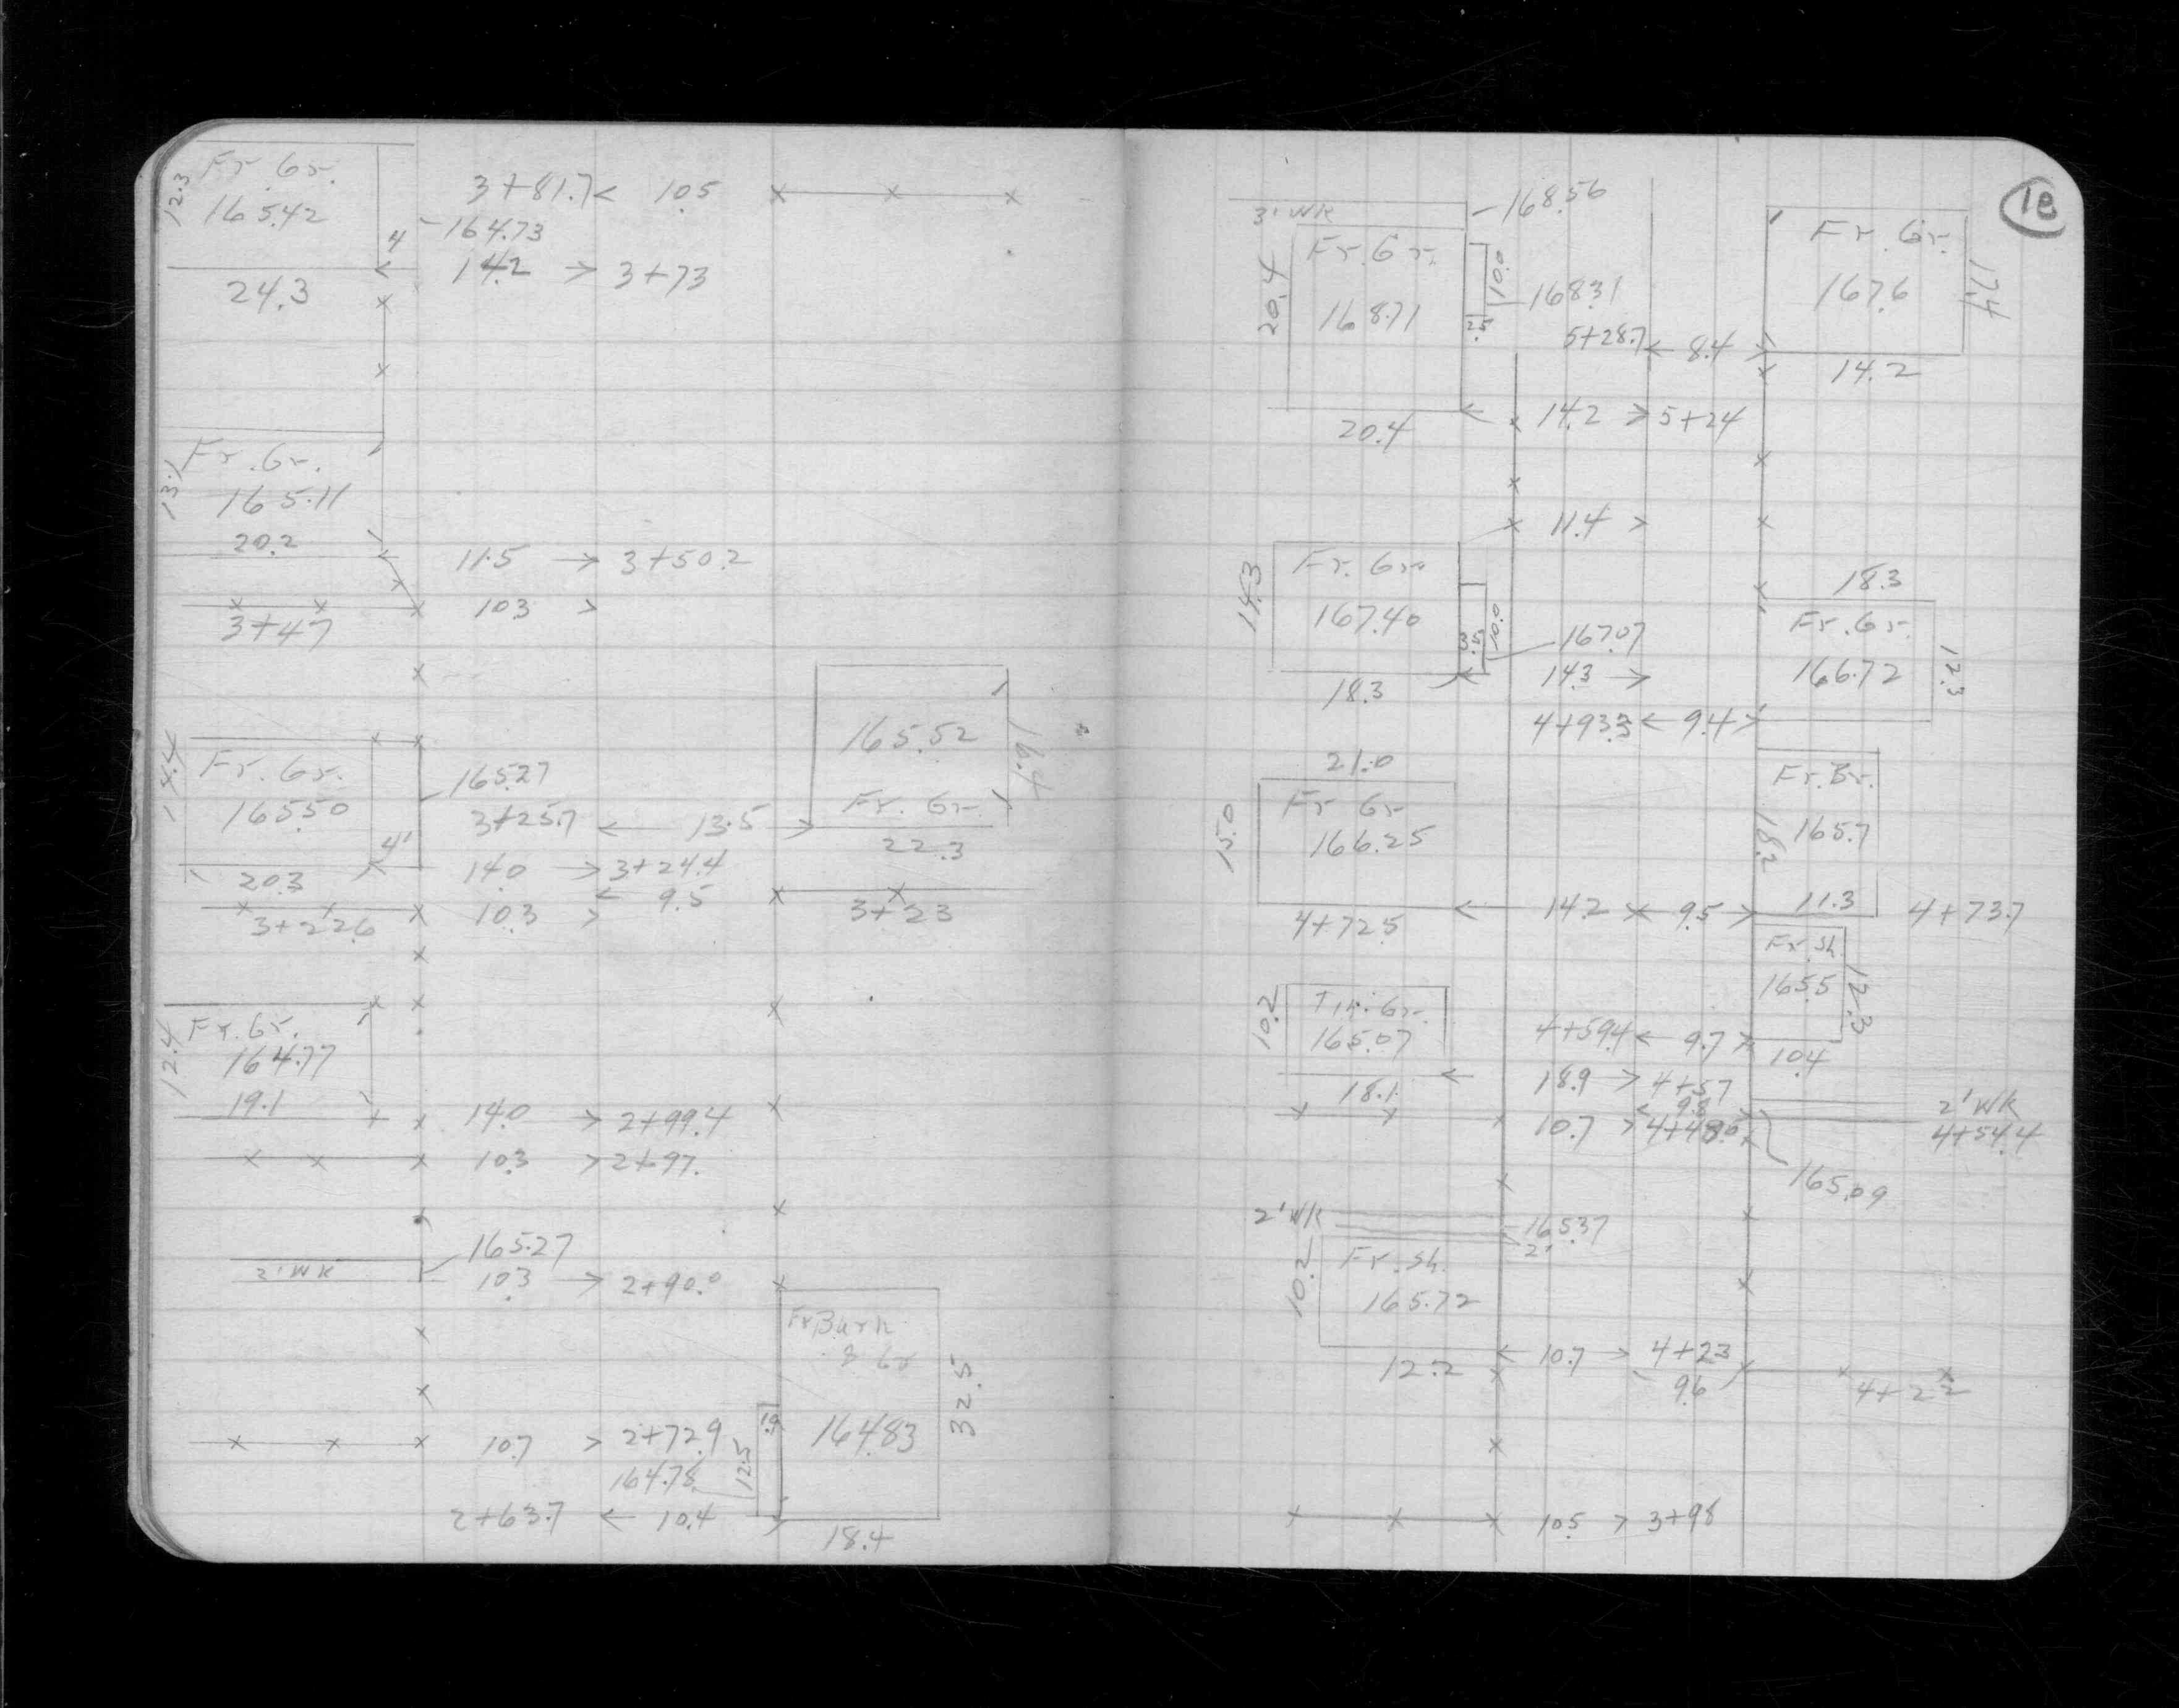 Fr. Gr.
12.3
165.42
3+81.7 < 10.5
4
164.73
14.2 > 3+73
24.3
Fr. Gr.
13.1
165.11
20.2
11.5 → 3+50.2
10.3 >
3+47
14.4
Fr. Gr.
165.50
4'
20.3
165.27
3+25.7 ← 13.5 →
165.52
Fr. Gr.
16.4
22.3
14.0 → 3+24.4
← 9.5
10.3 >
3+22.6
3+23
12.4
Fr. Gr.
164.77
19.1
14.0 > 2+99.4
10.3 > 2+97.
165.27
2' WK
10.3 → 2+90.0
Fr Barn
& Gr
32.5
164.83
10.7 > 2+72.9
1.9
12.5
164.78
2+63.7 ← 10.4
18.4
18
3' WK
168.56
Fr. Gr.
20.4
168.71
10.0
2.5
168.31
20.4
Fr. Gr.
167.6
17.4
5+28.7 < 8.4 >
14.2
14.2 > 5+24
11.4 >
14.3
Fr. Gr.
167.40
10.0
3.5
167.07
18.3
14.3 >
18.3
Fr. Gr.
166.72
12.3
4+93.3 < 9.4 >
21.0
15.0
Fr Gr.
166.25
Fr. Br.
165.7
18.2
11.3
4+72.5
← 14.2 × 9.5 >
4+73.7
Fr. Sh
165.5
12.3
10.2
165.07
18.1
4+59.4 < 9.7 >
10.4
18.9 > 4+57
< 9.8
10.7 >
2' WK
4+54.4
165.09
2' WK
165.37
2'
10.2
Fr. Sh.
165.72
12.2
← 10.7 → 4+23
9.6
4+22
10.5 > 3+98